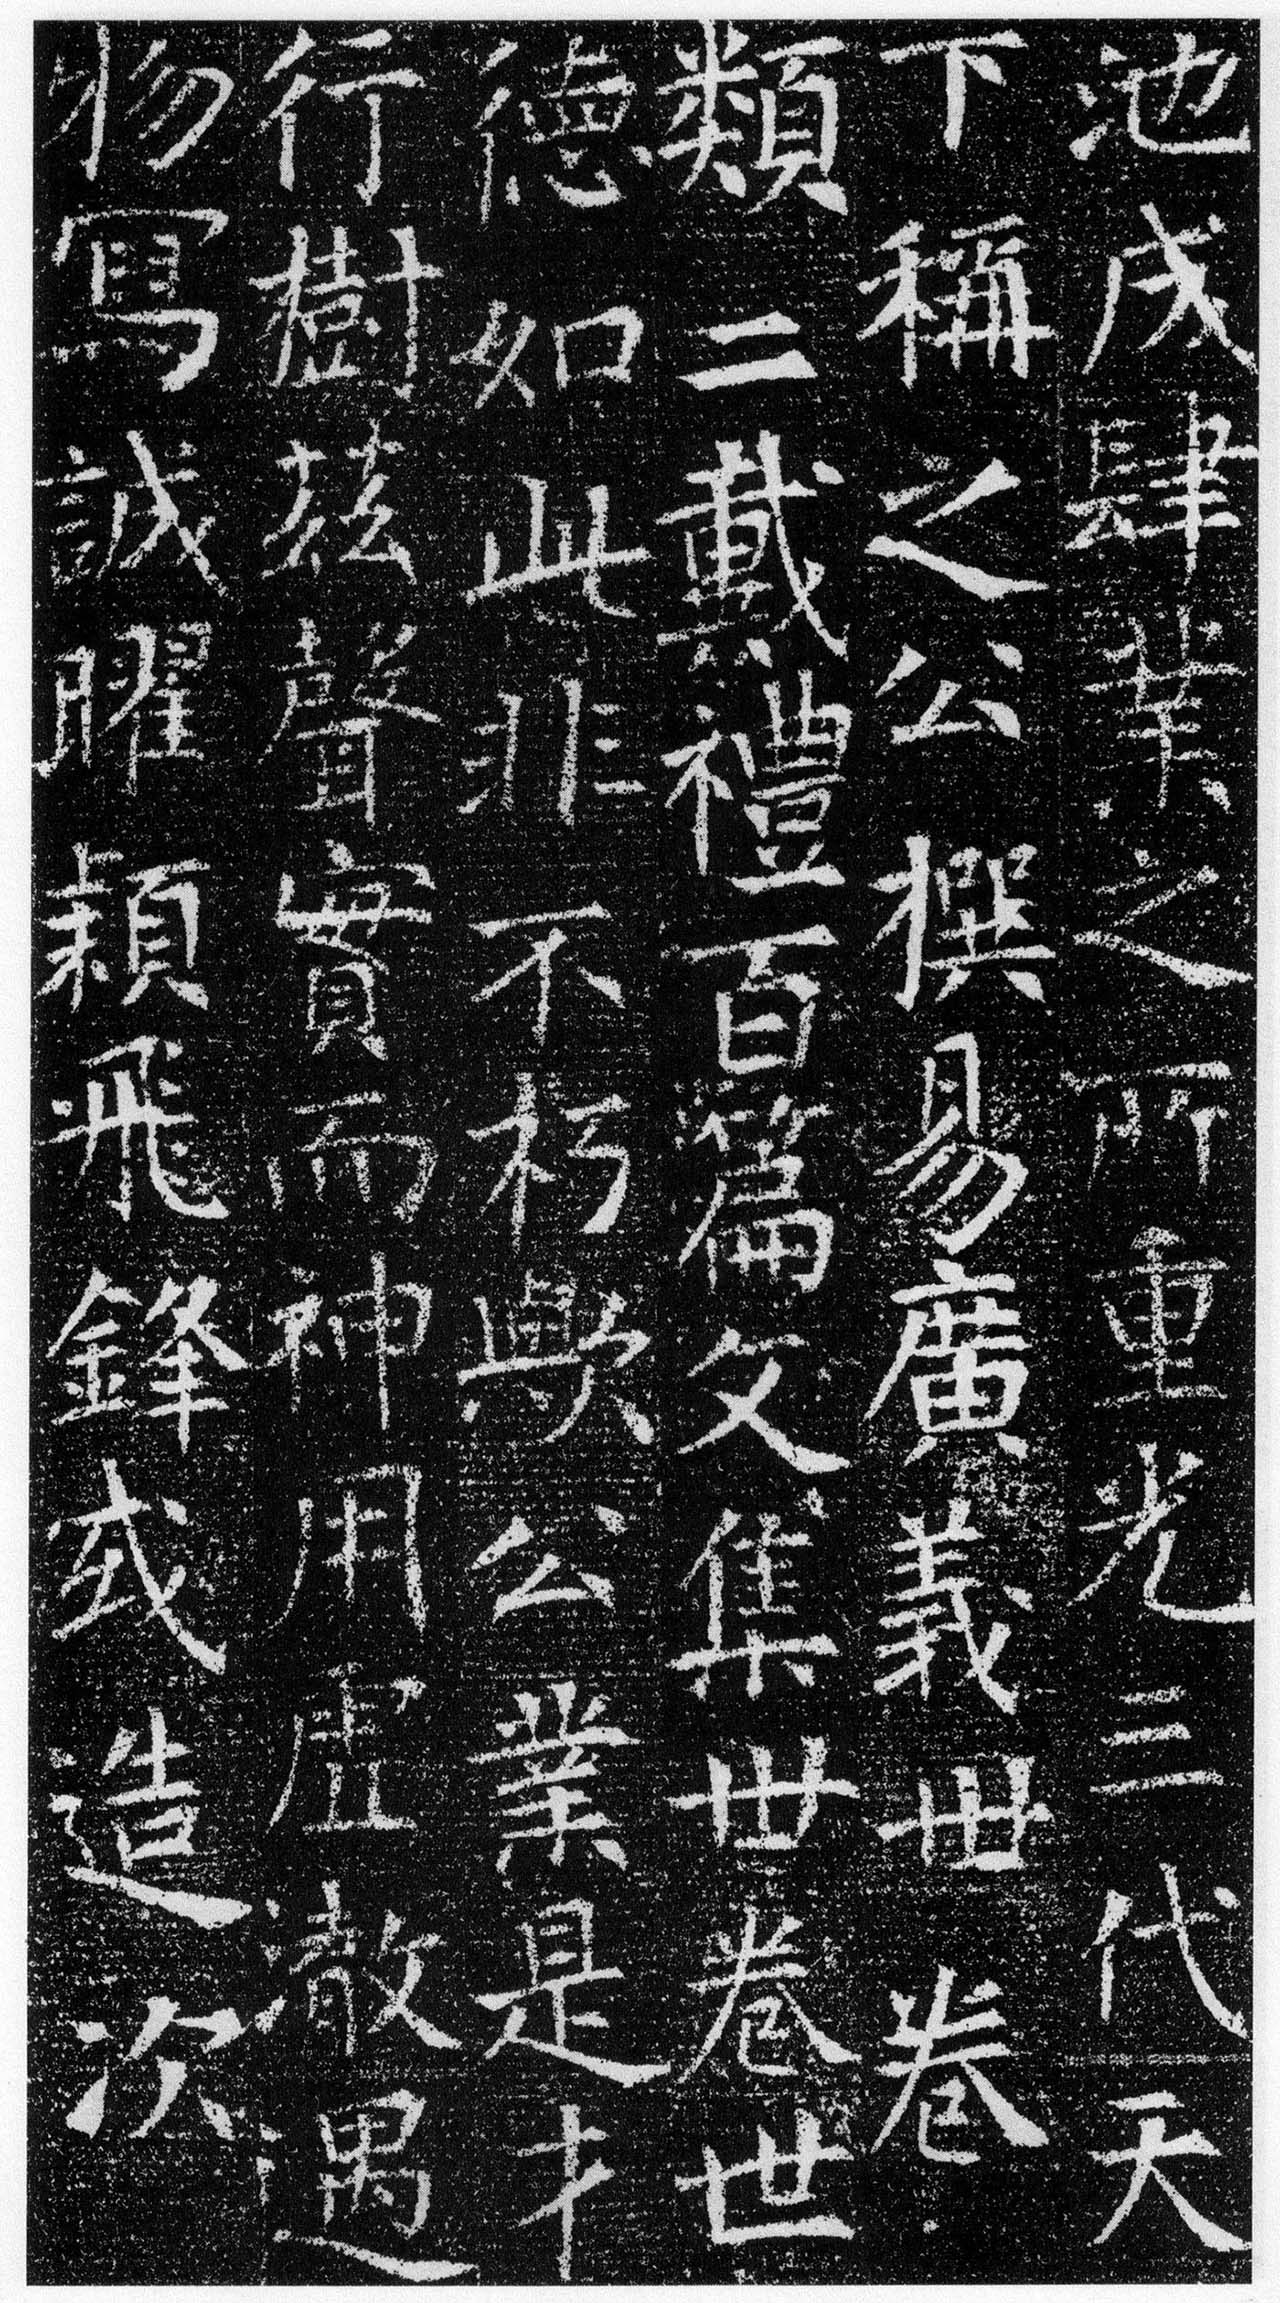 池戌肆業之所重光三代天
下稱之公撰易廣義卅卷
類二戴禮百篇文集卌卷世
德如此非不朽歟公業是才
行樹茲聲實而神用虛澈遇
物寫誠曜穎飛鋒或造次